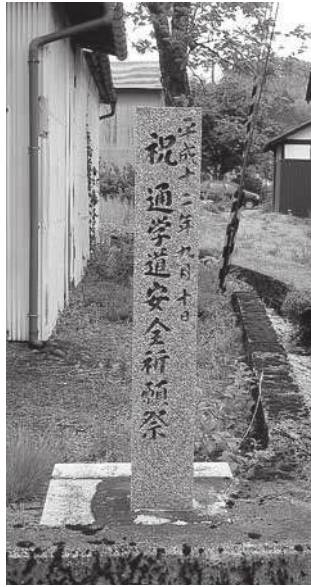 平成十二年九月十日
祝通学道安全祈願祭